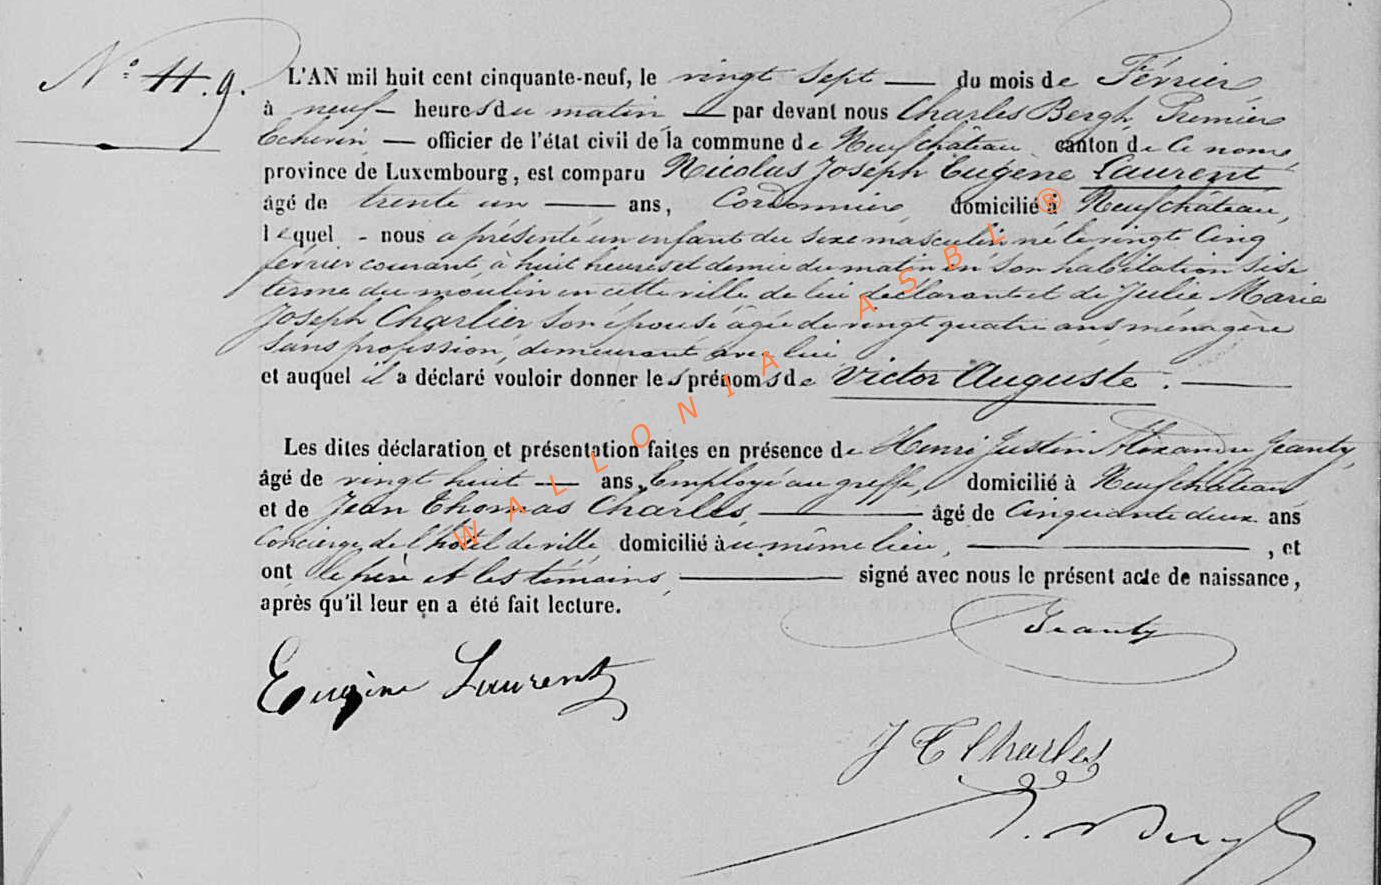 N° 11. 9.
L'AN mil huit cent cinquante-neuf, le vingt sept — du mois de Février
à neuf — heures du matin — par devant nous Charles Bergh, Premier
Echevin — officier de l'état civil de la commune de Neufchâteau canton de ce nom,
province de Luxembourg, est comparu Nicolas Joseph Eugène Laurent
âgé de trente un — ans, Cordonnier, domicilié à Neufchâteau,
lequel - nous a présenté un enfant du sexe masculin né le vingt Cinq
février courant, à huit heures et demie du matin en son habitation sise
terme du moulin en cette ville de lui déclarant et de Julie Marie
Joseph Charlier son épouse âgée de vingt quatre ans ménagère
sans profession, demeurant avec lui
et auquel il a déclaré vouloir donner les prénoms de Victor Auguste. —
Les dites déclaration et présentation faites en présence de Henri Justin Alexandre Jeanty,
âgé de vingt huit — ans, Employé au greffe, domicilié à Neufchâteau
et de Jean Thomas Charles, — âgé de Cinquante deux ans
Concierge de l'hôtel de ville domicilié au même lieu, — — , et
ont le père et les témoins, — signé avec nous le présent acte de naissance,
après qu'il leur en a été fait lecture.
Jeanty
Eugène Laurent
J T Charles
WALLONIA ASBL ®